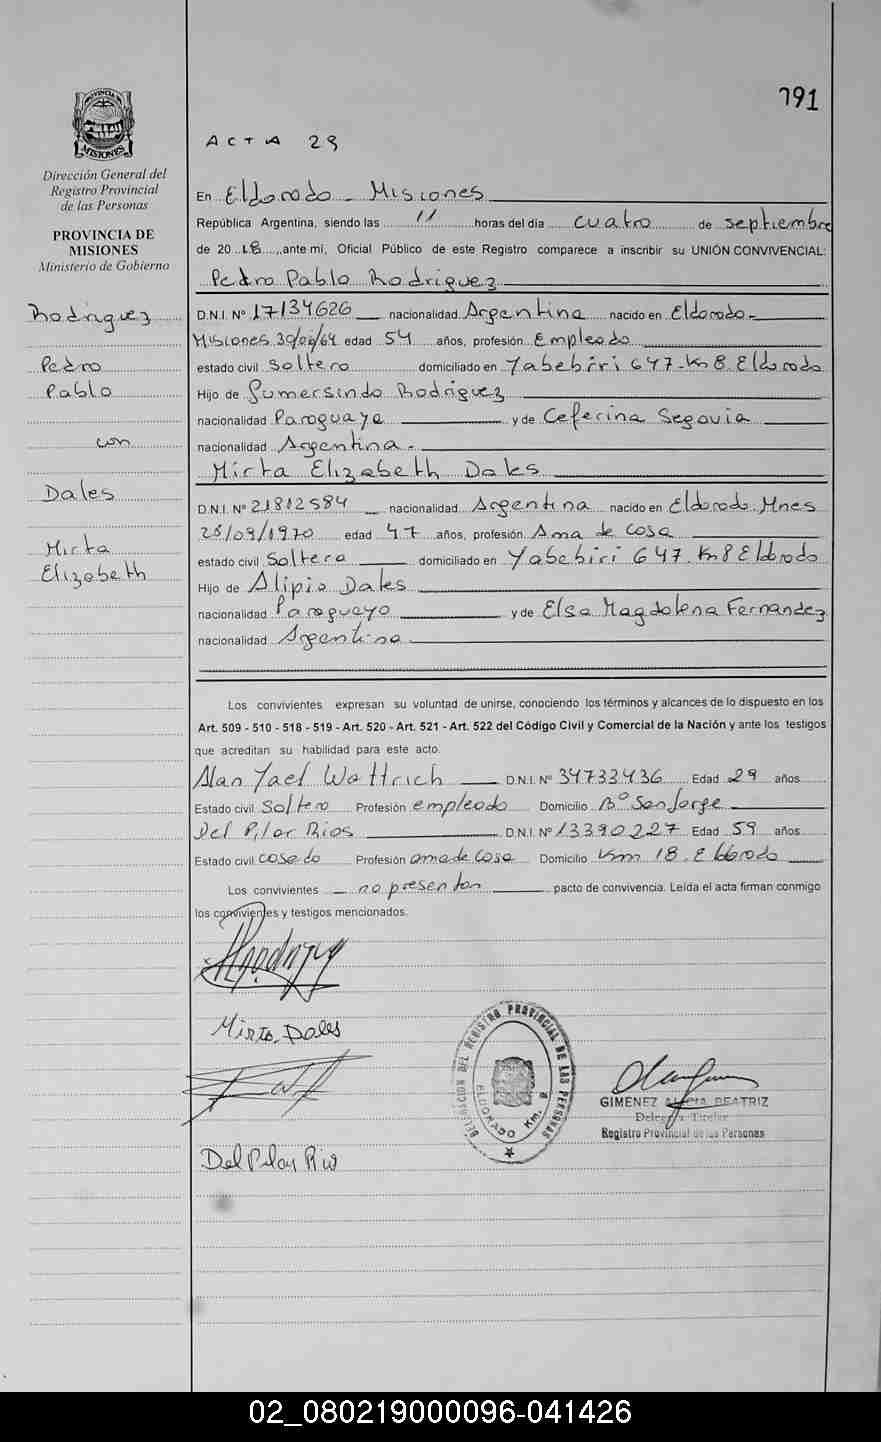 791
ACTA 29
PROVINCIA DE MISIONES
Dirección General del
Registro Provincial
de las Personas
PROVINCIA DE
MISIONES
Ministerio de Gobierno
Rodriguez
Pedro
Pablo
con
Dales
Mirta
Elizabeth
En Eldorado - Misiones
República Argentina, siendo las 11 horas del día cuatro de septiembre
de 2018, ante mí, Oficial Público de este Registro comparece a inscribir su UNIÓN CONVIVENCIAL:
Pedro Pablo Rodriguez
D.N.I. Nº 17134626 nacionalidad Argentina nacido en Eldorado-
Misiones 64 edad 54 años, profesión Empleado
estado civil Soltero domiciliado en Yabebiri 647-Km 8 Eldorado
Hijo de Gumersindo Rodriguez
nacionalidad Paraguaya y de Ceferina Segovia
nacionalidad Argentina-
Mirta Elizabeth Dales
D.N.I. Nº 21812584 nacionalidad Argentina nacido en Eldorado. Mnes
28/09/1970 edad 47 años, profesión Ama de casa
estado civil Soltera domiciliado en Yabebiri 647. Km 8 Eldorado
Hijo de Alipio Dales
nacionalidad Paraguayo y de Elsa Magdalena Fernandez
nacionalidad Argentina
Los convivientes expresan su voluntad de unirse, conociendo los términos y alcances de lo dispuesto en los
Art. 509 - 510 - 518 - 519 - Art. 520 - Art. 521 - Art. 522 del Código Civil y Comercial de la Nación y ante los testigos
que acreditan su habilidad para este acto.
Alan Yael Wattrich D.N.I. Nº 34733436 Edad 29 años
Estado civil Soltero Profesión empleado Domicilio Bº San Jorge
Del Pilar Rios D.N.I. Nº 13390227 Edad 59 años
Estado civil casado Profesión ama de casa Domicilio Km 18. Eldorado
Los convivientes no presentan pacto de convivencia. Leída el acta firman conmigo
los convivientes y testigos mencionados.
Mirta Dales
DELEGACION DEL REGISTRO PROVINCIAL DE LAS PERSONAS
ELDORADO Km. 8
GIMENEZ ALICIA BEATRIZ
Delegada Titular
Registro Provincial de las Personas
Del Pilar Rios
02_080219000096-041426